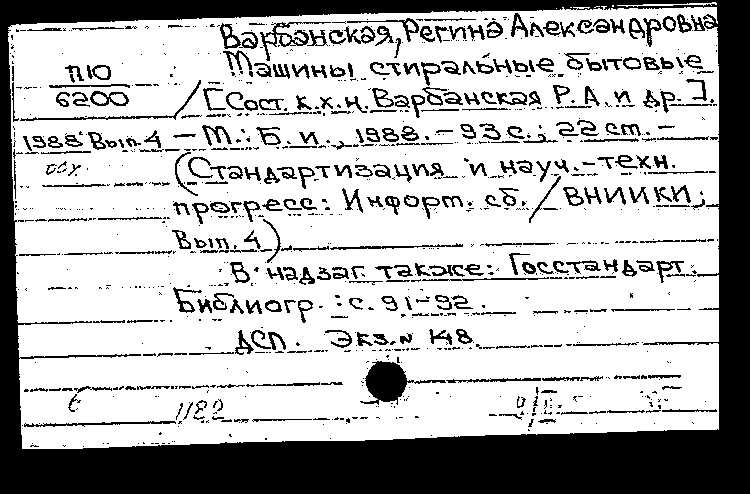 Варбанская, Регина Александровна
П10 Машины стиральные бытовые
6200 / [Сост. к.х.н. Варбанская Р.А. и др.].
1988 Вып. 4 – М.: Б. и., 1988. – 93 с.; 22 см. –
(Стандартизация и науч.-техн.
прогресс: Информ. сб. / ВНИИКИ;
Вып. 4)
В надзаг. также: Госстандарт.
Библиогр.: с. 91–92.
ДСП. Экз. № 148.
б 1182